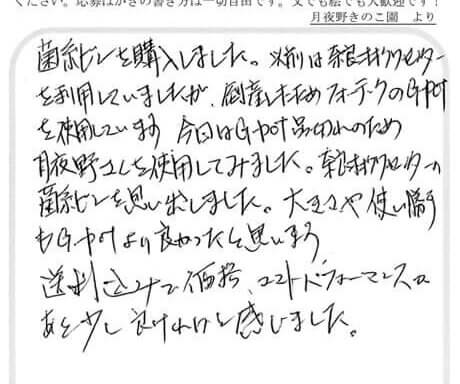 ください。応募はがきの書き方は一切自由です。文でも絵でも大歓迎です！
月夜野きのこ園　より
菌糸ビンを購入しました。以前は奈良オオクワセンター
を利用していましたが、倒産したためフォーテックのG-pot
を使用しています 今回はG-pot品切れのため
月夜野さんを使用してみました。奈良オオクワセンターの
菌糸ビンを思い出しました。大きさや使い勝手
もG-potより良かったと思います
送料込みで価格、コストパフォーマンスは
あと少し 良ければと感じました。